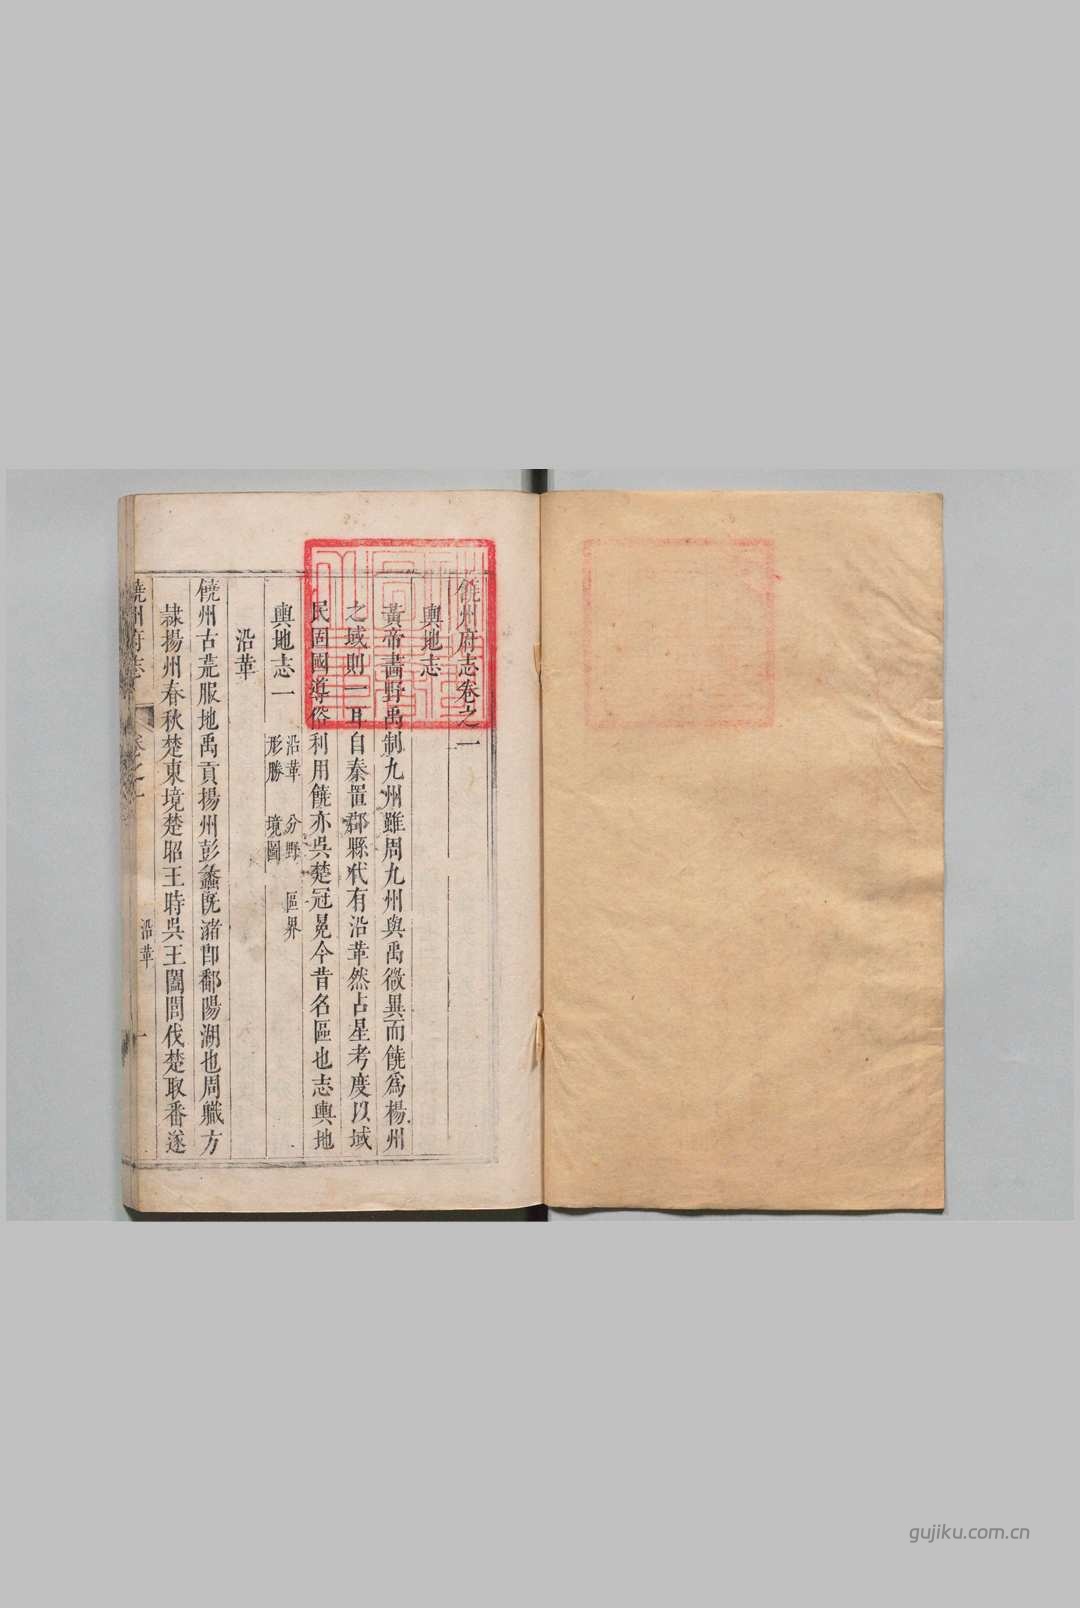 饒州府志卷之一
輿地志
黃帝畫野禹制九州雖周九州與禹微異而饒爲楊州
之域則一耳自秦置郡縣代有沿革然占星考度以域
民固國導俗利用饒亦吳楚冠冕今昔名區也志輿地
輿地志一
沿革 分野 區界
形勝 境圖
沿革
饒州古荒服地禹貢揚州彭蠡旣瀦卽鄱陽湖也周職方
隷揚州春秋楚東境楚昭王時吳王闔閭伐楚取番遂
饒州府志
卷之一
沿革
一
gujiku.com.cn